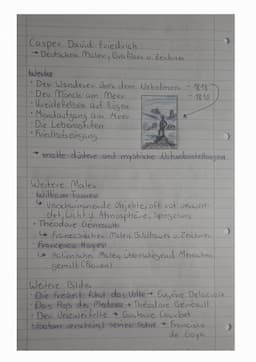 Caspar David Friedrich
→ Deutscher Maler, Grafiker u. Zeichner
Werke
· Der Wanderer über dem Nebelmeer - 1818
· Der Mönch am Meer - 1810
· Kreidefelsen auf Rügen
· Mondaufgang am Meer
· Die Lebensstufen
· Friedhofseingang
→ malte düstere und mystische
Weitere Maler
William Turner
↳ Verschwimmende Objekte, oft rot
Licht u. Atmosphäre,
· Théodore Géricault
↳ Französischer Maler, Bildhauer u. Zeichner
Francesco Hayez
↳ Italienischer Maler, überwiegend Menschen
gemalt (Frauen)
Weitere Bilder
· Die Freiheit führt das Volk → Eugène Delacroix
· Das Floß der Medusa → Théodore Géricault
· Der Verzweifelte → Gustave Courbet
· Saturn verschlingt seinen Sohn → Francisco
de Goya